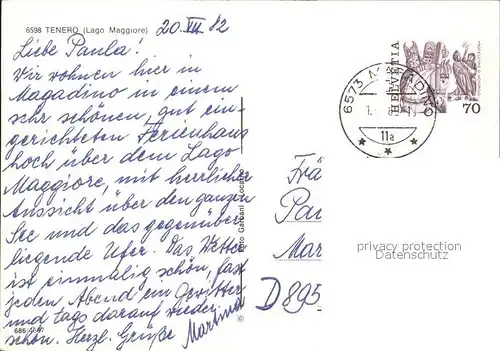 6598 TENERO (Lago Maggiore)
20. VII 82
Liebe Paula!
Wir wohnen hier in
Magadino in einem
sehr schönen, gut ein-
gerichteten Ferienhaus
hoch über dem Lago
Maggiore, mit herrlicher
Aussicht über den ganzen
See und das gegenüber
liegende Ufer. Das Wetter
ist einmalig schön, fast
jeden Abend ein Gewitter
und tags darauf wieder
schön. Herzl. Grüße Martina
Foto Garbani - Locarno
©
HELVETIA
70
6573 MAGADINO
11a
Frä
Pau
Mar
D 895
privacy protection
Datenschutz